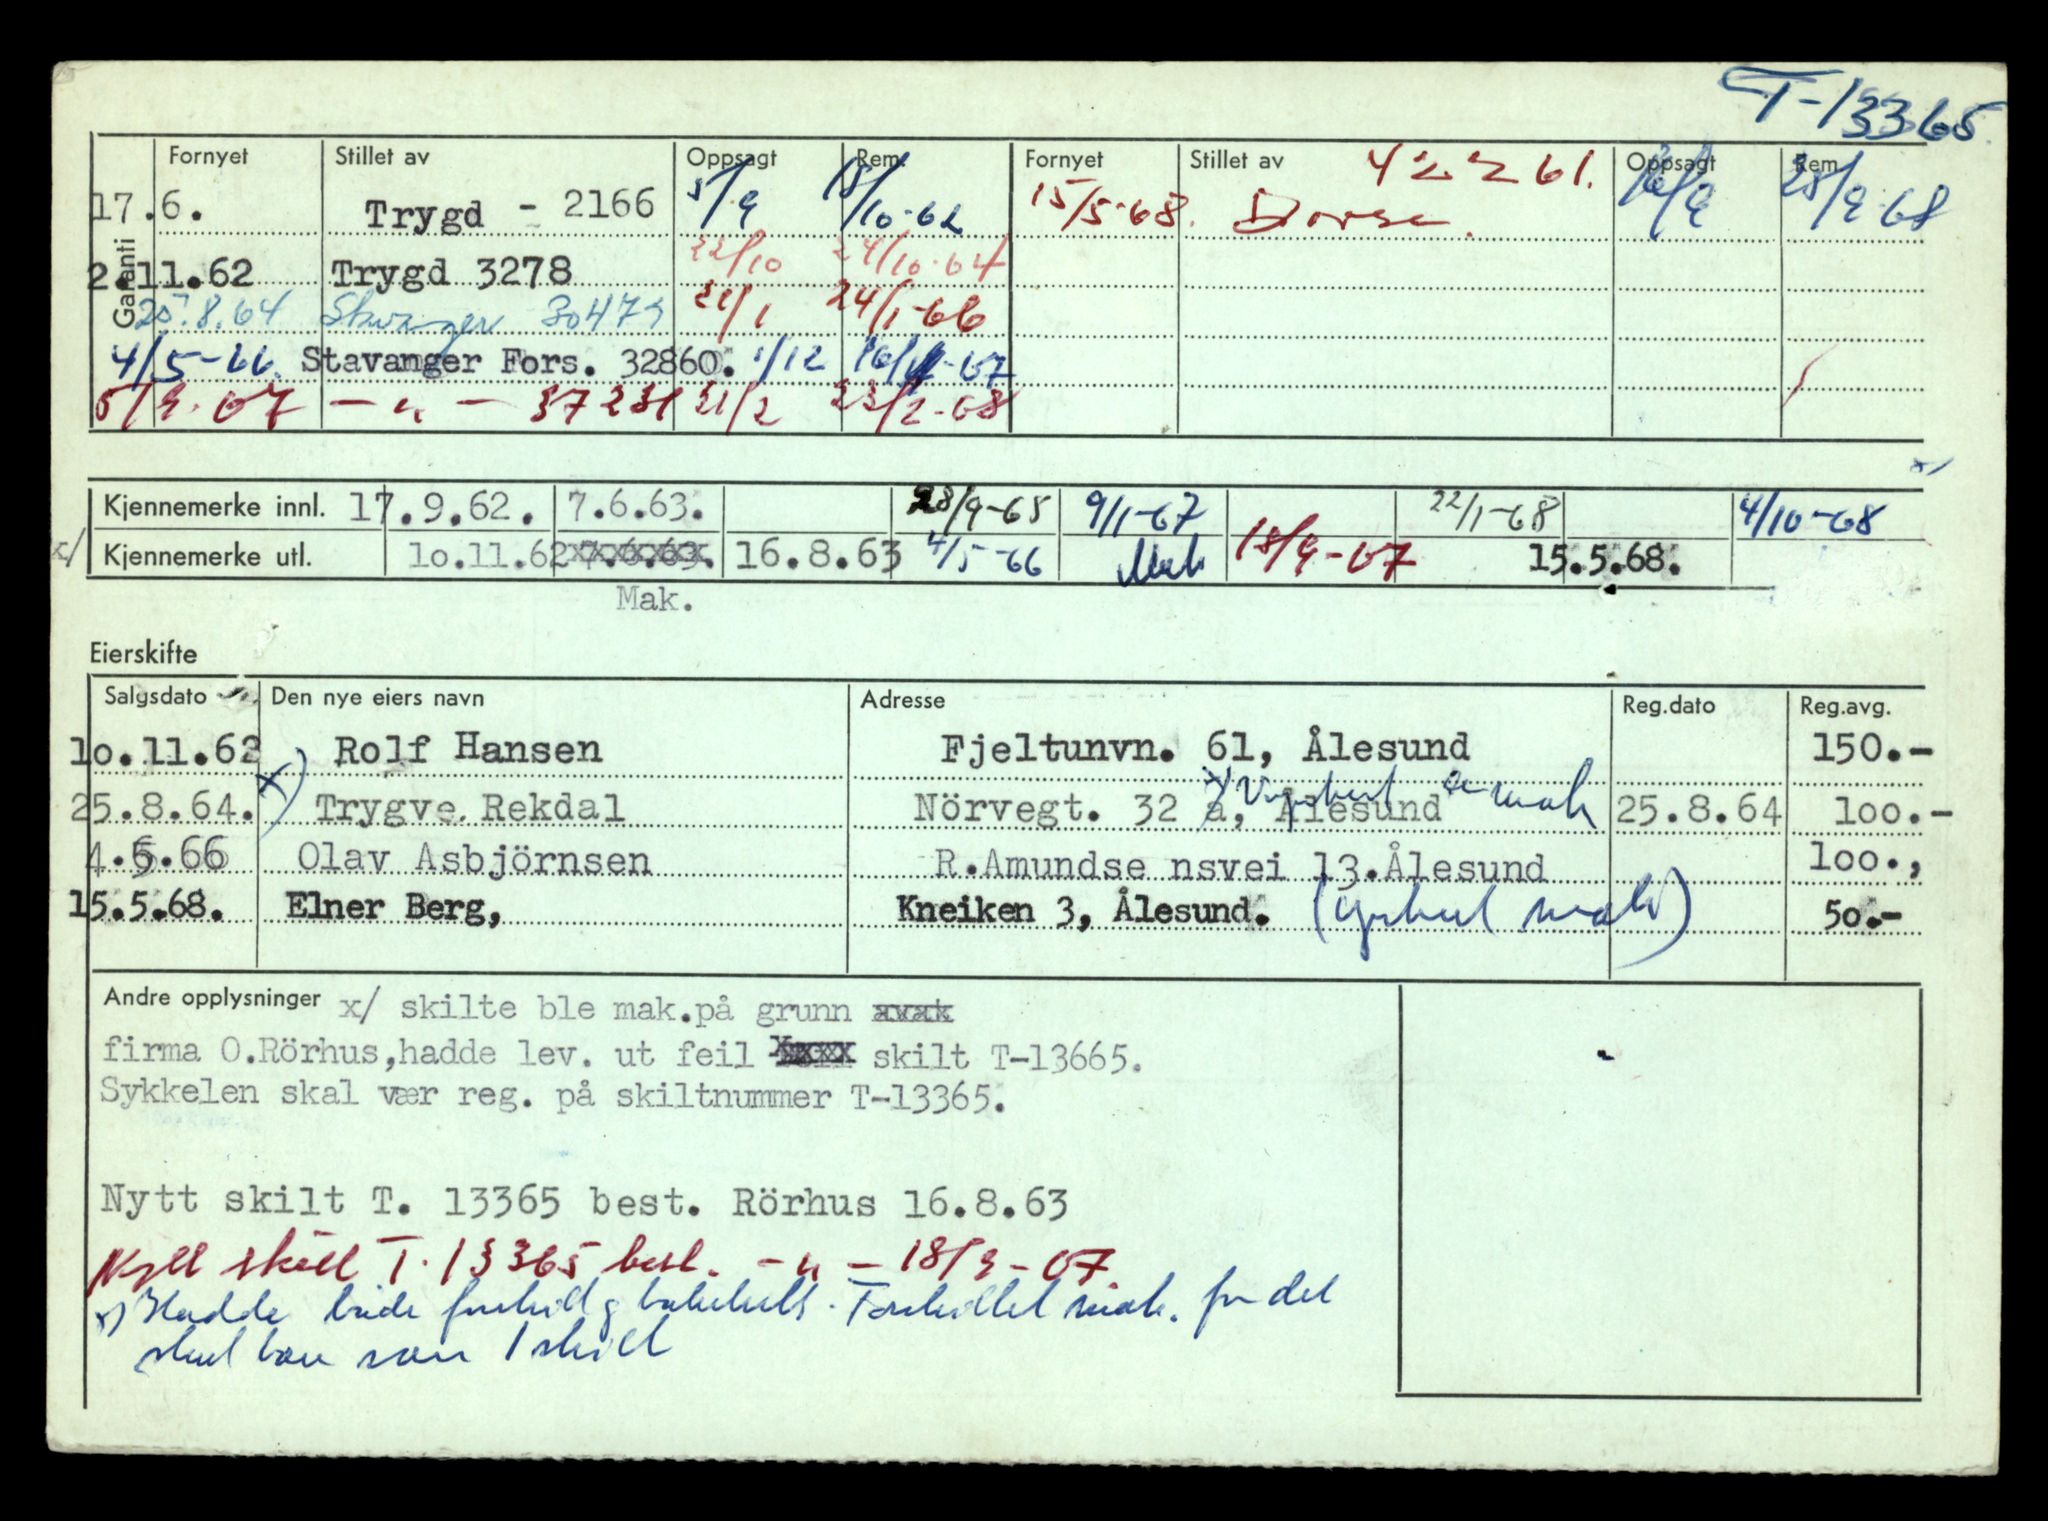 T-13365
Fornyet Stillet av Oppsagt Rem. Fornyet Stillet av 42261. Oppsagt Rem.
Garanti
17.6. Trygd - 2166 5/9 18/10-62 15/5-68. 28/9-68
2.11.62 Trygd 3278 22/10 24/10-64
25.8.64 Stavanger 30479 21/1 24/1-66
4/5-66. Stavanger Fors. 32860. 1/12 -67
5/9-67 - " - 37231 21/2 23/2-68
x/
Kjennemerke innl. 17.9.62. 7.6.63. 28/9-65 9/1-67 22/1-68 4/10-68
x/ Kjennemerke utl. 10.11.62 7.6.63. 16.8.63 4/5-66 Mak 18/9-67 15.5.68.
Mak.
Eierskifte
Salgsdato Den nye eiers navn Adresse Reg.dato Reg.avg.
10.11.62 Rolf Hansen Fjeltunvn. 61, Ålesund 150.-
x) mak
25.8.64. Trygve Rekdal Nörvegt. 32 a, Ålesund 25.8.64 100.-
4.5.66 Olav Asbjörnsen R.Amundse nsvei 13.Ålesund 100.,
15.5.68. Elner Berg, Kneiken 3, Ålesund. mak) 50.-
Andre opplysninger x/ skilte ble mak.på grunn
firma O.Rörhus,hadde lev. ut feil skilt T-13665.
Sykkelen skal vær reg. på skiltnummer T-13365.
Nytt skilt T. 13365 best. Rörhus 16.8.63
Nytt skilt T. 13365 best. - " - 18/9-67.
x) Hadde både forskilt og bakskilt. Forskiltet mak. for det
skal bare være 1 skilt